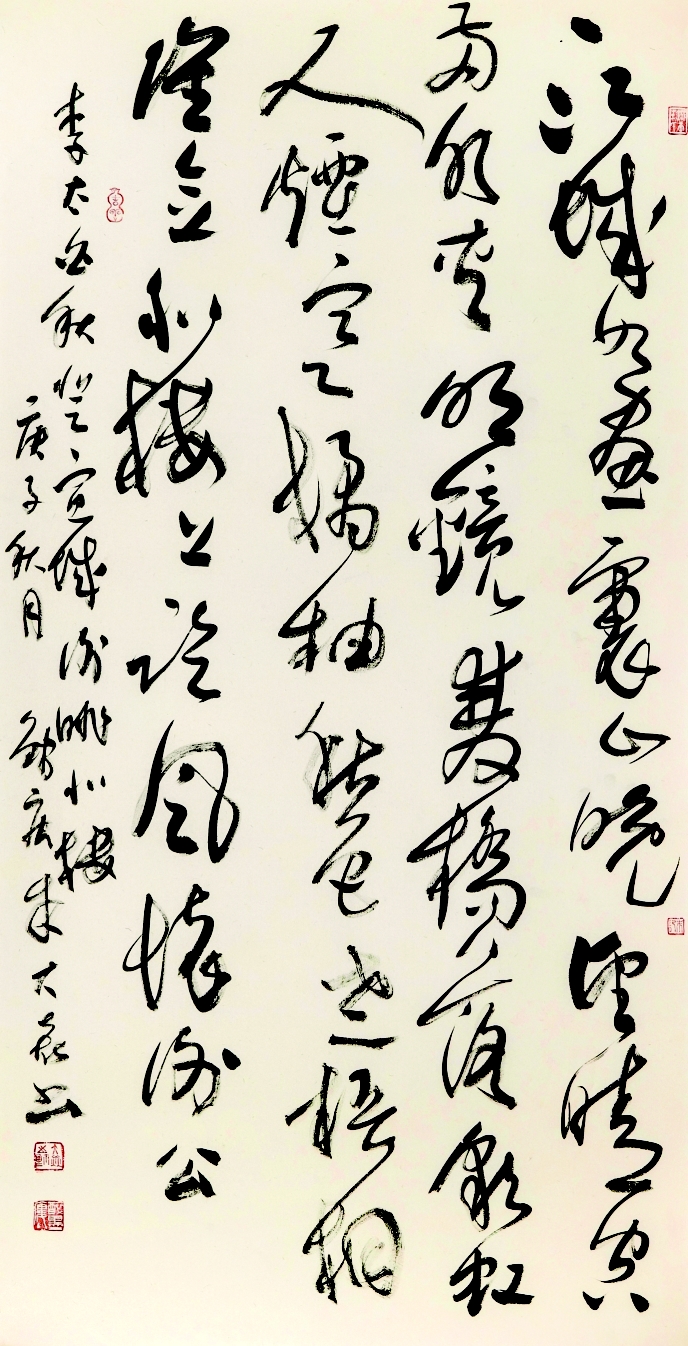 江城如畫裏山晚望晴空
兩水夾明鏡雙橋落彩虹
人煙寒橘柚秋色老梧桐
誰念北樓上臨風懷謝公
李太白秋登宣城謝朓北樓
庚子秋月 朱大 書